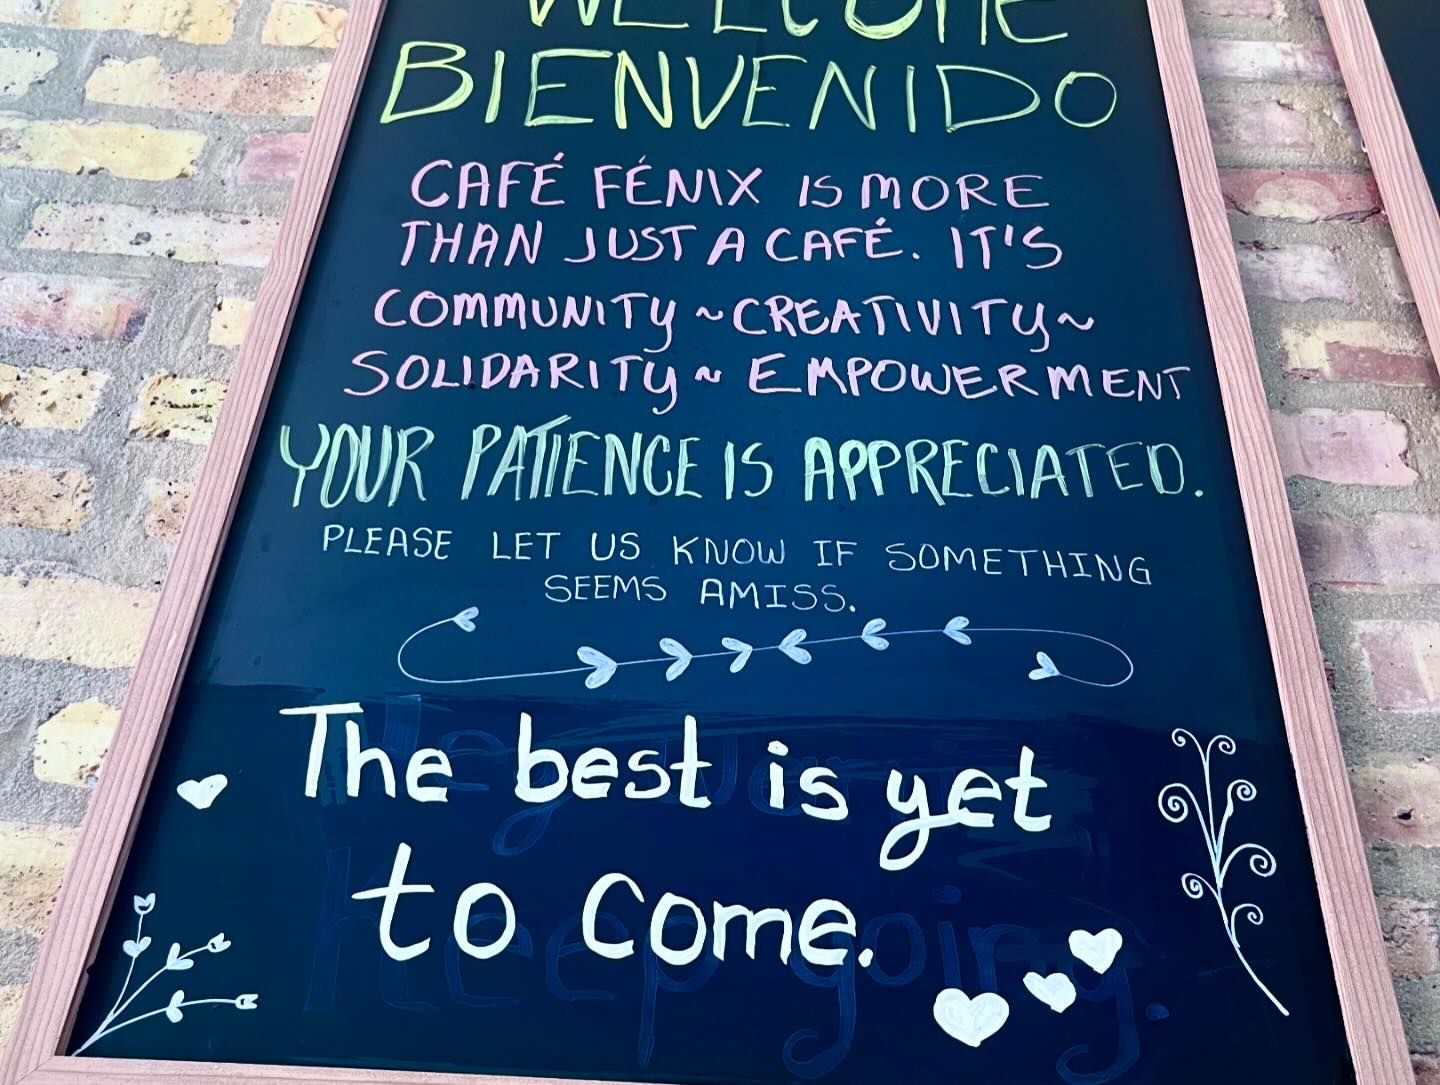 WELCOME
BIENVENIDO
CAFÉ FÉNIX IS MORE
THAN JUST A CAFÉ. IT'S
COMMUNITY ~ CREATIVITY ~
SOLIDARITY ~ EMPOWERMENT
YOUR PATIENCE IS APPRECIATED.
PLEASE LET US KNOW IF SOMETHING
SEEMS AMISS.
The best is yet
to come.
keep going.